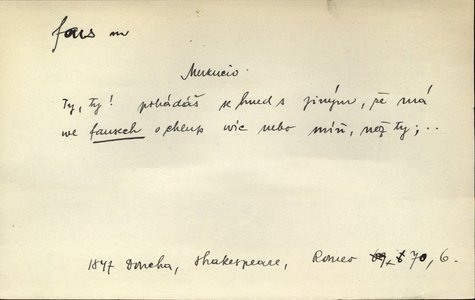 faus m
Merkucio.
Ty, ty! pohádáš se hned s jiným, že má
we fausech o chlup víc nebo míň, než ty;..
1847 Doucha, Shakespeare, Romeo 70, 6.